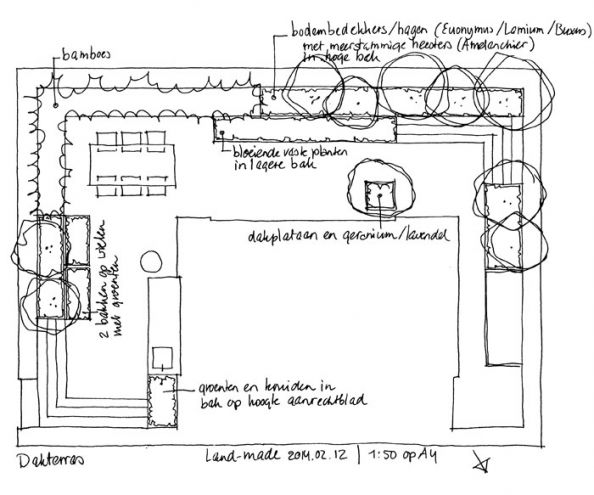 bodembedekkers/hagen (Euonymus/Lamium/Buxus)
met meerstammige heesters (Amelanchier)
in hoge bak
bamboes
bloeiende vaste planten
in lagere bak
dakplataan en geranium/lavendel
2 bakken op wielen
met groenten
groenten en kruiden in
bak op hoogte aanrechtblad
Dakterras
Land-made 2014.02.12 | 1:50 op A4